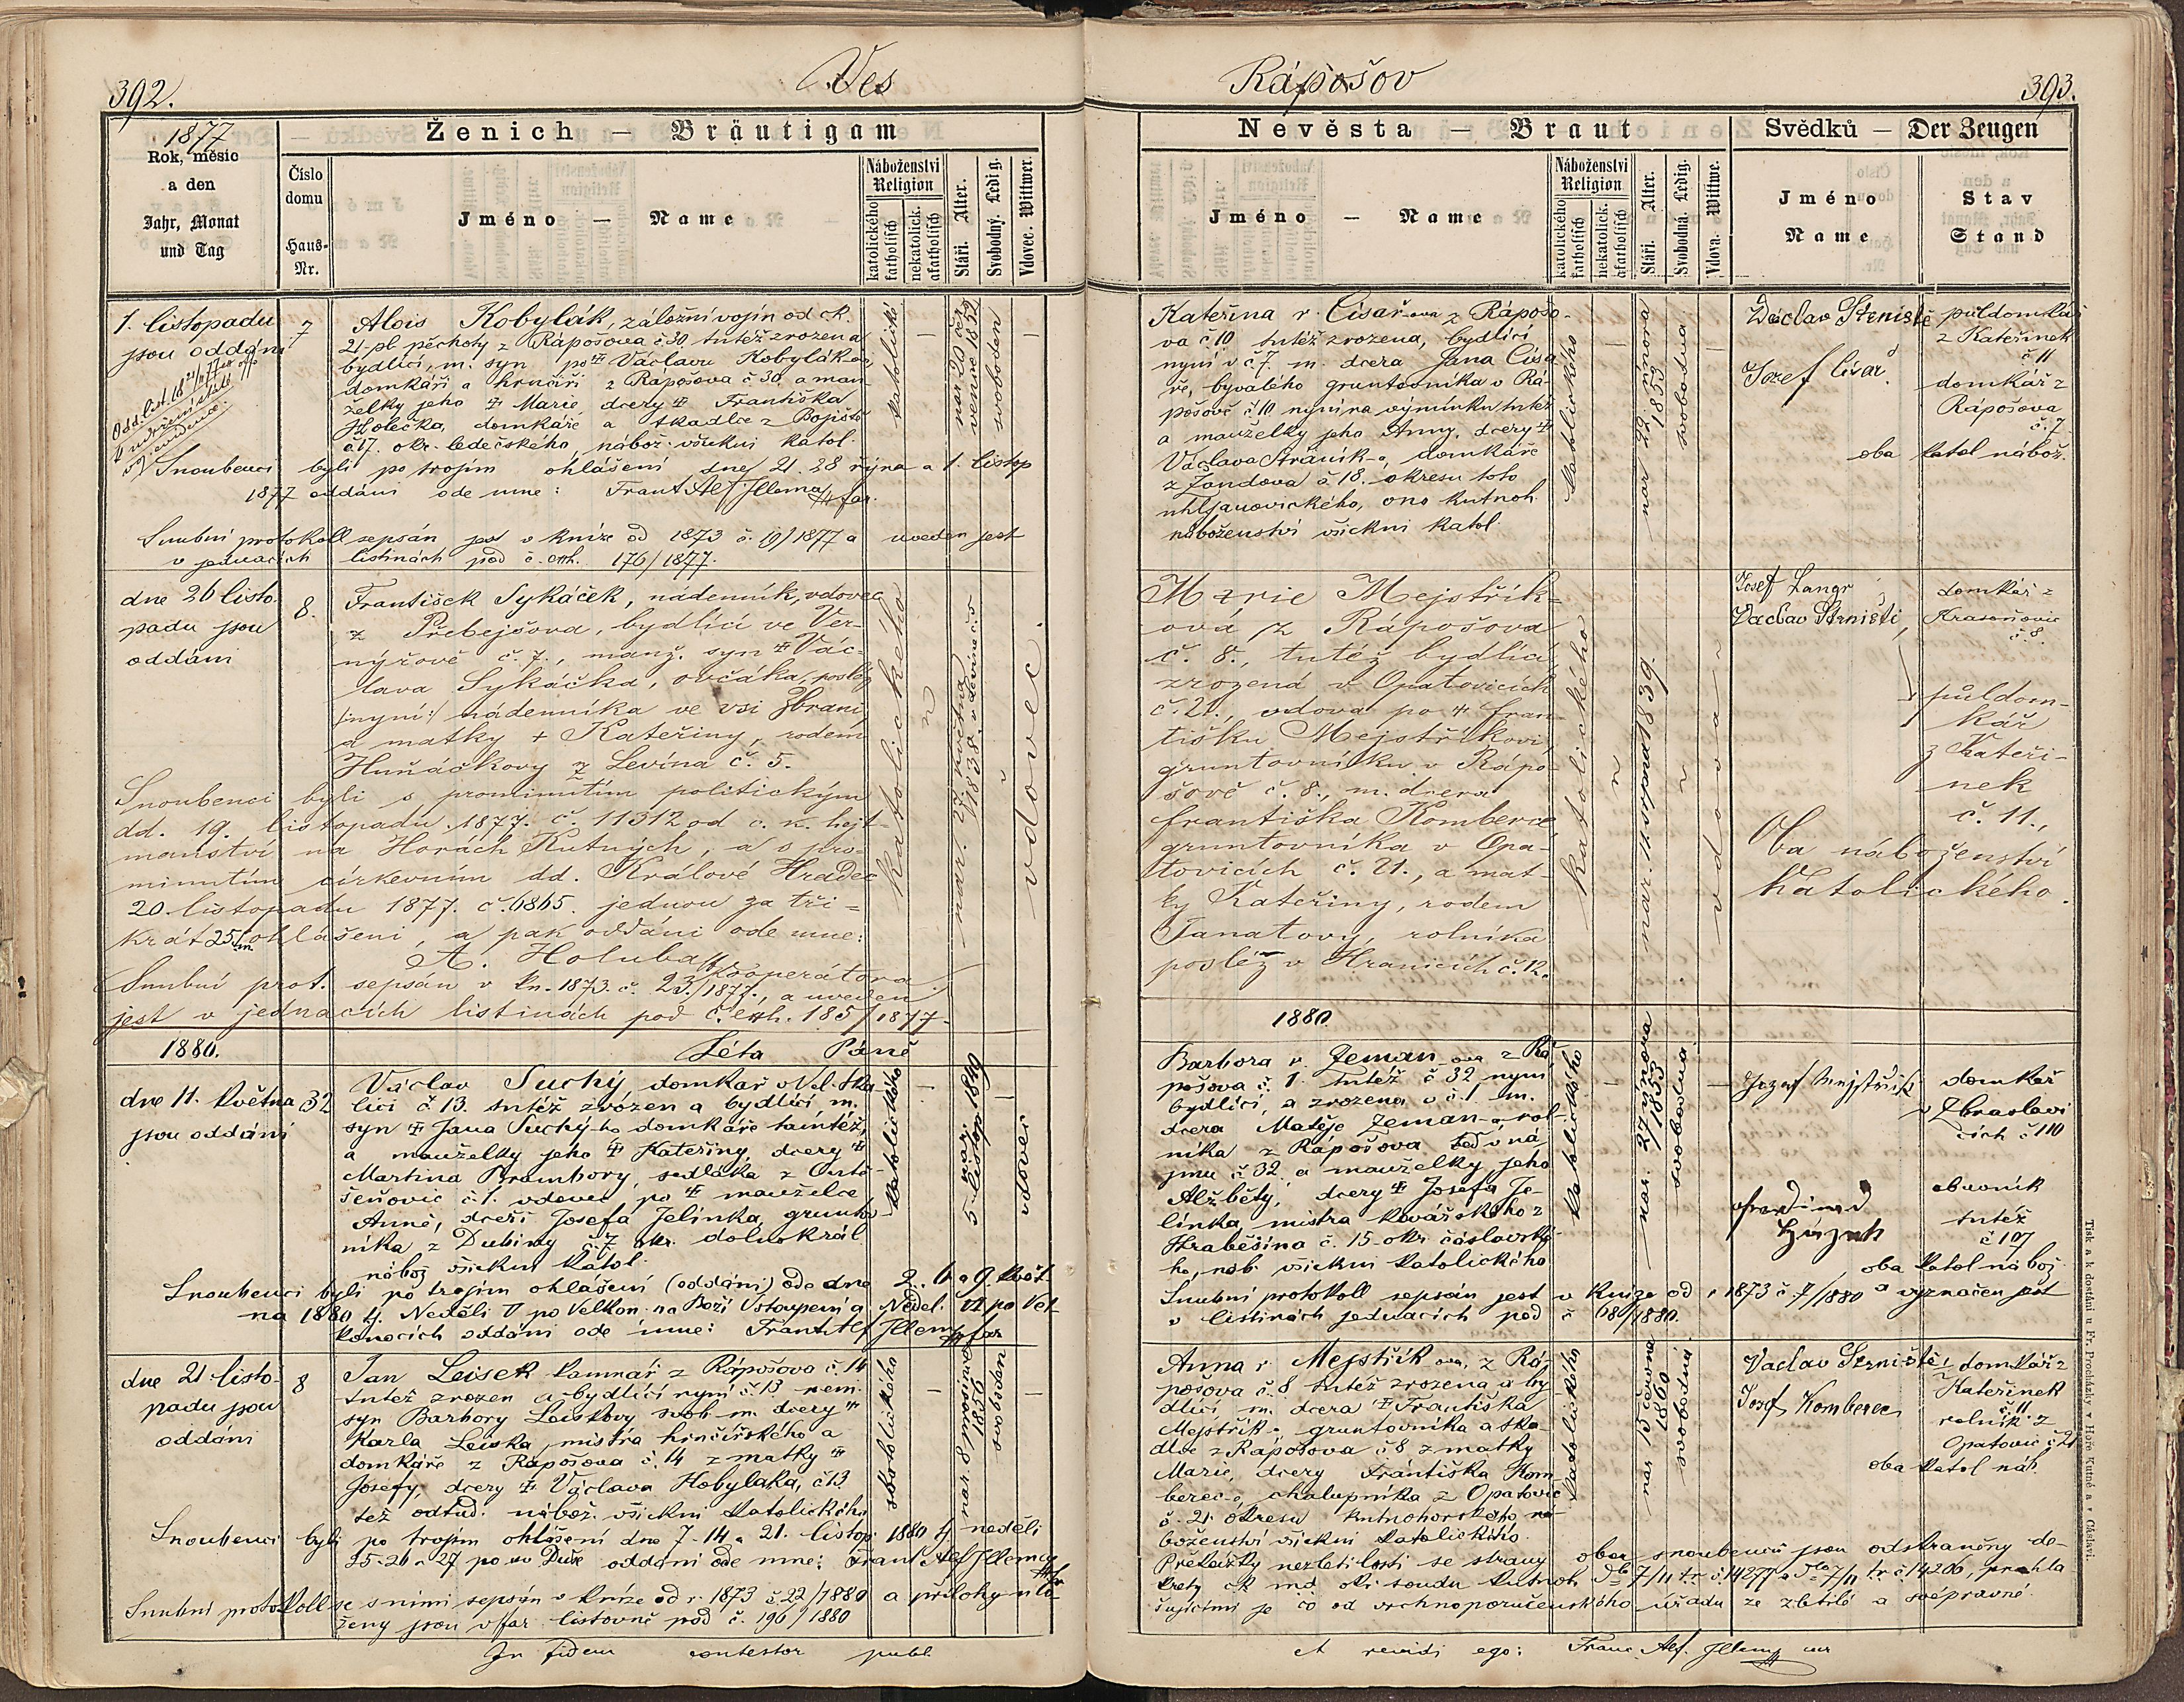 392.
Ves
Rápošov
393.
1877
Rok, měsíc
a den
Jahr, Monat
und Tag
Ženich — Bräutigam
Číslo
domu
Haus-
Nr.
Jméno — Name
Náboženství
Religion
katolického
katholisch
nekatolick.
akatholisch
Stáří. Alter.
Svobodný. Ledig.
Vdovec. Wittwer.
Nevěsta — Braut
Jméno — Name
Náboženství
Religion
katolického
katholisch
nekatolick.
akatholisch
Stáří. Alter.
Svobodná. Ledig.
Vdova. Wittwe.
Svědků — Der Zeugen
Jméno
Name
Stav
Stand
1. listopadu
jsou oddáni
7
Alois Kobylák, záložní vojín od ck.
21. pl. pěchoty z Rápošova č 30 tutéž zrozen a
bydlící, m. syn po Václavu Kobylák-ov,
domkáři a hrnčíři z Rápošova č 30. a man-
želky jeho Marie, dcery Františka
Holečka, domkáře a tkadlce z Bojiště
č 17. okr. ledečského, nábož. všickni katol.
katolické
nar 20 čer
vence 1852
svoboden
Snoubenci byli po trojím ohlášení dne 21. 28 října a 1. listop
1877 oddáni ode mne: Frant. Alf. Jllema far.
Snubní protokoll sepsán jest v knize od 1873 č. 19/1877 a uveden jest
v jednacích listinách pod č. exh. 176/1877.
Kateřina r. Císař-ova z Rápošo-
va č 10 tutéž zrozena, bydlící
nyní v č 7. m. dcera Jana Císa
ře, bývalého gruntovníka v Rá-
pošově č 10 nyní na výminku tutéž
a manželky jeho Anny, dcery
Václava Stráník-a, domkáře
z Žandova č 18. okresu toho
uhljanovického, ono kutnoh.
náboženství všickni katol.
katolického
nar 22 února
1853
svobodna
Václav Strniště
Josef Císař
půldomkář
z Kateřinek
č 11
domkář z
Rápošova
č. 7
oba katol nábož.
dne 26 listo-
padu jsou
oddáni
8.
František Sykáček, nádenník, vdovec
z Přebejšova, bydlící ve Ver-
nýřově č. 7., manž. syn Vác-
lava Sykáčka, ovčáka, posléz
/:nyní:/ nádenníka ve vsi Zbrani,
a matky + Kateřiny, rodem
Huňáčkovy z Levína č. 5.
katolického
nar. 25. května
1838. v Levíně č. 5
vdovec.
Snoubenci byli s prominutím politickým
dd. 19. listopadu 1877. č. 11312 od c. k. hejt-
manství na Horách Kutných, a s pro-
minutím církevním dd. Králové Hradec
20. listopadu 1877. č. 6865. jednou za tři-
krát 25. ohlášeni, a pak oddáni ode mne:
A. Holuba kooperátora.
Snubní prot. sepsán v kn. 1873. č. 23./1877., a uveden
jest v jednacích listinách pod č. exh. 185/1877.
Marie Mejstřík-
ová z Rápošova
č. 8., tutéž bydlící,
zrozená v Opatovicích
č. 21., vdova po Fran-
tišku Mejstříkovi,
gruntovníku v Rápo-
šově č. 8., m. dcera
Františka Komberce,
gruntovníka v Opa-
tovicích č. 21., a mat-
ky Kateřiny, rodem
Fanatovy, rolníka
posléz v Hranicích č. 12.
katolického
nar. 11. srpna 1839.
vdova
Josef Langr
Václav Strniště,
domkář z
Krasoňovic
č. 8.
půldom-
kář
z Kateři-
nek
č. 11.,
Oba náboženství
katolického.
1880.
Léta Páně
1880.
dne 11. května
jsou oddáni
32
Václav Suchý, domkář v Vel. Ska-
lici č 13. tutéž zrozen a bydlící m.
syn Jana Suchý-ho domkáře tamtéž,
a manželky jeho Kateřiny, dcery
Martina Brambory, sedláka z Ostá-
šeňovic č 1. vdovec po manželce
Anně, dceři Josefa Jelínka, gruntov
níka z Dubiny č. 7 okr. dolnokrál.
nábož všickni katol.
katolického
nar.
5 listop 1849
vdovec
Snoubenci byli po trojím ohlášení (oddáni) ode dne 2. 6 a 9. květ-
na 1880 tj. Neděli V po Velkon. na Boží Vstoupení a Neděl. VI po Vel-
konocích oddáni ode mne: Frant. Alf. Jllem far
Barbora r. Zeman-ova z Rá
pošova č. 1. tutéž č 32 nyní
bydlící, a zrozena v č. 1 m.
dcera Matěje Zeman-a, rol-
níka z Rápošova teď v ná
jmu č 32 a manželky jeho
Alžběty, dcery Josefa Je-
línka, mistra kovářského z
Hraběšína č. 15. okr. čáslavské-
ho, náb. všickni katolického
katolického
nar. 27 února
1853
svobodna
Snubní protokoll sepsán jest v knize od r 1873 č 7/1880 a vyznačen jest
v listinách jednacích pod č 68/1880.
Jozef Mejstřík
domkář
v Zbraslavi
cích č 110
obuvník
tutéž
č 107
oba katol nábož
dne 21 listo-
padu jsou
oddáni
8
Jan Leisek kamnář z Rápošova č. 14
tutéž zrozen a bydlící nyní č. 13 nem.
syn Barbory Leiskovy svob. m. dcery
Karla Leiska, mistra hrnčířského a
domkáře z Rápošova č. 14 z matky
Josefy, dcery Václava Hobylaka, č 13
též odtud. nábož. všickni katolického
katolického
nar. 8 prosince
1856
svoboden
Snoubenci byli po trojím ohlášení dne 7. 14 a 21. listop. 1880 tj neděli
25. 26 a 27 po sv Duše oddáni ode mne: Frant Alf Jllem
Snubní protokoll se s nimi sepsán v knize od r. 1873 č 22/1880 a přílohy ulo-
ženy jsou v far. listovně pod č. 196/1880
Anna r. Mejstřík-ova, z Rá-
pošova č. 8 tutéž zrozena a by
dlící m. dcera Františka
Mejstřík-a, gruntovníka a tka-
dlce z Rápošova č 8 z matky
Marie, dcery Františka Kom
berec-e, chalupníka z Opatovic
č. 21. okresu kutnohorského, ná-
boženství všickni katolického.
katolického
nar 15 června
1860
svobodná
Překážky nezletilosti se strany obou snoubenců jsou odstraněny de-
krety ck md okr. soudu kutnoh. 7/11 tr. č. 14277 a 7/11 tr č 14286, prohla
šujícími je co od vrchnoporučenského úřadu za zletilé a svéprávné
Václav Strniště,
Josef Komberec
domkář z
Kateřinek
č. 11
rolník z
Opatovic č 21
oba katol náb.
In fidem contestor publ.
et revidi ego: Franc. Alf. Jllem
Tisk a k dostání u Fr. Procházky v Hoře Kutné a v Čáslavi.